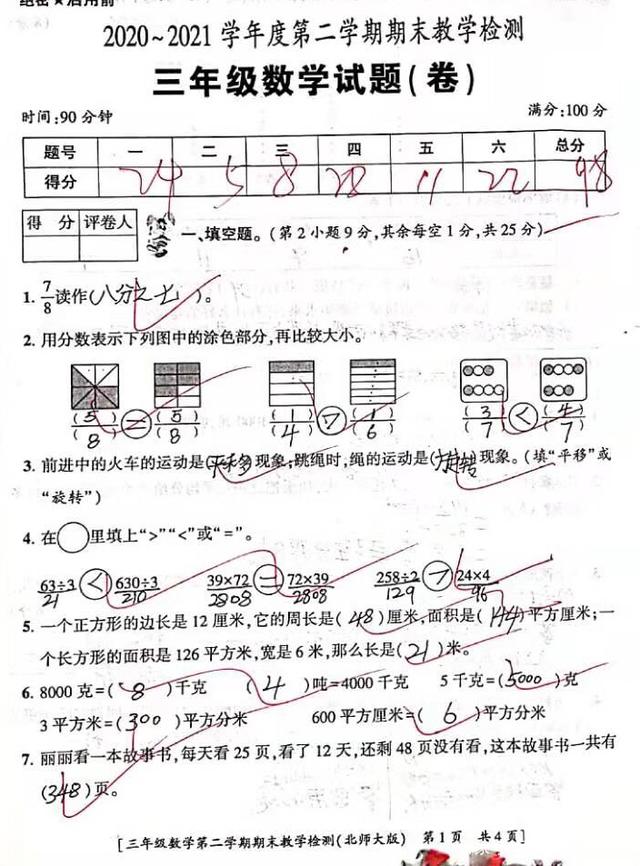 绝密★启用前
2020~2021学年度第二学期期末教学检测
三年级数学试题(卷)
时间:90分钟 满分:100分
题号 一 二 三 四 五 六 总分
得分 24 5 8 28 11 22 98
得 分 评卷人
一、填空题。(第2小题9分,其余每空1分,共25分)
1. 7/8读作(八分之七)。
2. 用分数表示下列图中的涂色部分,再比较大小。
(5)/(8) = (5)/(8) (1)/(4) > (1)/(6) (3)/(7) < (4)/(7)
3. 前进中的火车的运动是(平移)现象;跳绳时,绳的运动是(旋转)现象。(填“平移”或
“旋转”)
4. 在○里填上“>”“<”或“=”。
63÷3 < 630÷3 39×72 = 72×39 258÷2 > 24×4
21 210 2808 2808 129 96
5. 一个正方形的边长是12厘米,它的周长是(48)厘米,面积是(144)平方厘米;一
个长方形的面积是126平方米,宽是6米,那么长是(21)米。
6. 8000克=(8)千克 (4)吨=4000千克 5千克=(5000)克
3平方米=(300)平方分米 600平方厘米=(6)平方分米
7. 丽丽看一本故事书,每天看25页,看了12天,还剩48页没有看,这本故事书一共有
(348)页。
[三年级数学第二学期期末教学检测(北师大版) 第1页 共4页]